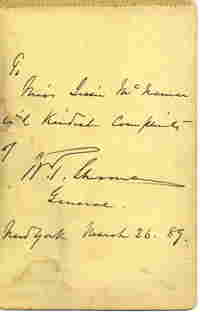 To
Miss Lizzie McNamer
with Kindest Compliments
of
W. T. Sherman
General.
New York March 26. 89.